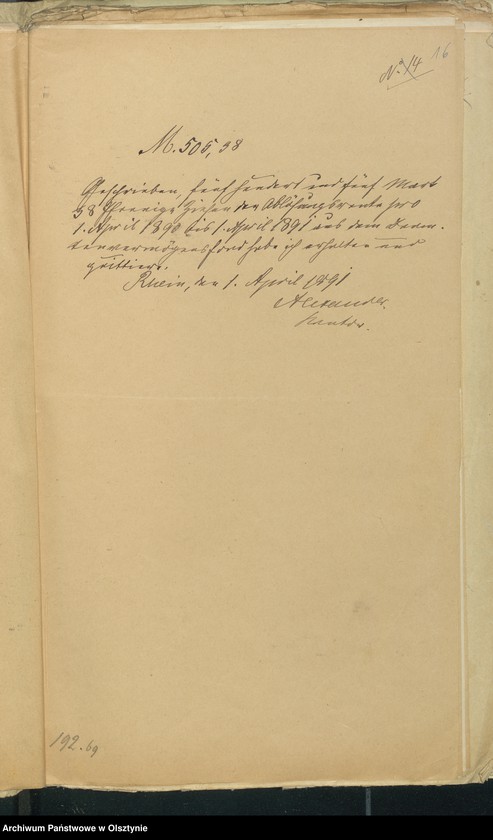 16
No. 14
M. 505,58
Geschrieben, fünfhundert und fünf Mark
58 Pfennige Zinsen der Ablösungsrente pro
1. April 1890 bis 1. April 1891 aus dem
tenvermögensfond habe ich erhalten und
quittiere.
Rhein, den 1. April 1891
Alexander.
Kantor.
192.69
Archiwum Państwowe w Olsztynie